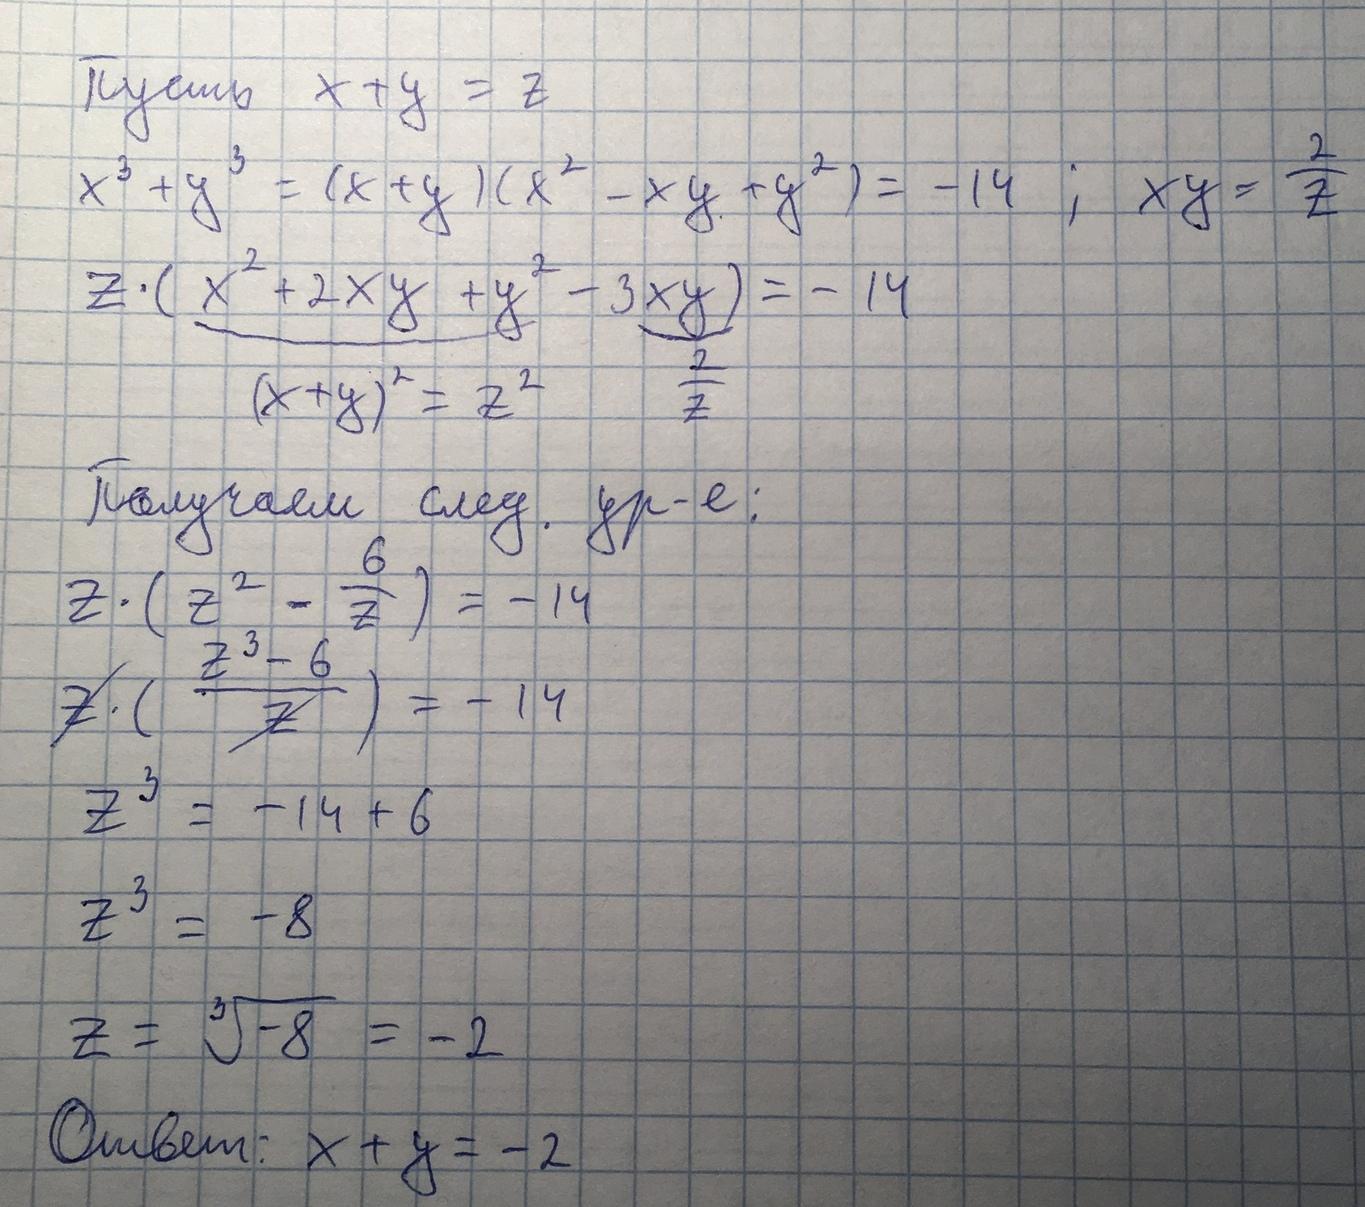 Пусть x + y = z
x³ + y³ = (x + y)(x² - xy + y²) = -14 ; xy = 2/z
z·(x² + 2xy + y² - 3xy) = - 14
(x + y)² = z² 2/z
Получаем след. ур-е:
z·(z² - 6/z) = -14
z·((z³ - 6)/z) = -14
z³ = -14 + 6
z³ = -8
z = ³√-8 = -2
Ответ: x + y = -2